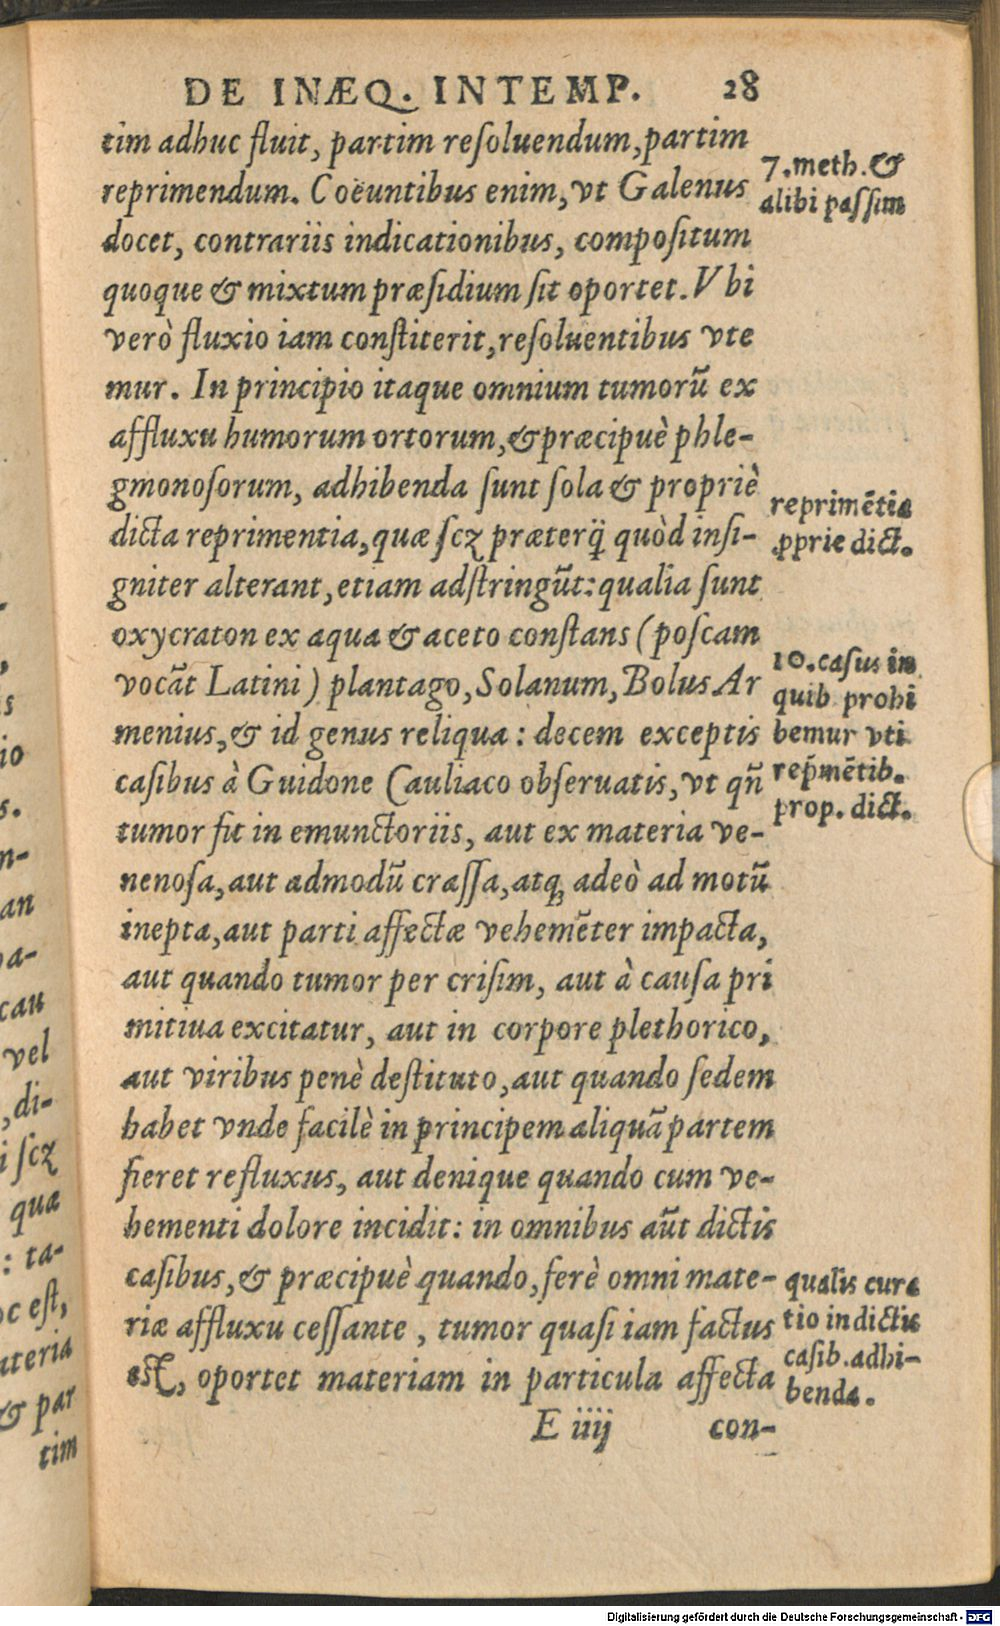 DE INÆQ. INTEMP. 28
tim adhuc fluit, partim reſoluendum, partim
reprimendum. Coëuntibus enim, vt Galenus
docet, contrariis indicationibus, compoſitum
quoque & mixtum præſidium ſit oportet. Vbi
verò fluxio iam conſtiterit, reſoluentibus vte
mur. In principio itaque omnium tumorũ ex
affluxu humorum ortorum, & præcipuè phle-
gmonoſorum, adhibenda ſunt ſola & propriè
dicta reprimentia, quæ ſcꝫ præterꝗ̃ quòd inſi-
gniter alterant, etiam adſtringũt: qualia ſunt
oxycraton ex aqua & aceto conſtans (poſcam
vocãt Latini) plantago, Solanum, Bolus Ar
menius, & id genus reliqua: decem exceptis
caſibus à Guidone Cauliaco obſeruatis, vt qñ
tumor fit in emunctoriis, aut ex materia ve-
nenoſa, aut admodũ craſſa, atqꝫ adeò ad motũ
inepta, aut parti affectæ vehemẽter impacta,
aut quando tumor per criſim, aut à cauſa pri
mitiua excitatur, aut in corpore plethorico,
aut viribus penè deſtituto, aut quando ſedem
habet vnde facilè in principem aliquã partem
fieret refluxus, aut denique quando cum ve-
hementi dolore incidit: in omnibus aũt dictis
caſibus, & præcipuè quando, ferè omni mate-
riæ affluxu ceſſante, tumor quaſi iam factus
eſt, oportet materiam in particula affecta
E iiij con-
7. meth. &
alibi paſſim
reprimẽtia
ꝓprie dict.
10. caſus in
quib prohi
bemur vti
rep̃mẽtib.
prop. dict.
qualis cura
tio in dictis
caſib. adhi-
benda.
,
s
io
s.
n-
an
a-
cau
vel
, di-
i ſcꝫ
qua
: ta-
oc eſt,
ateria
& par
tim
Digitalisierung gefördert durch die Deutsche Forschungsgemeinschaft - DFG